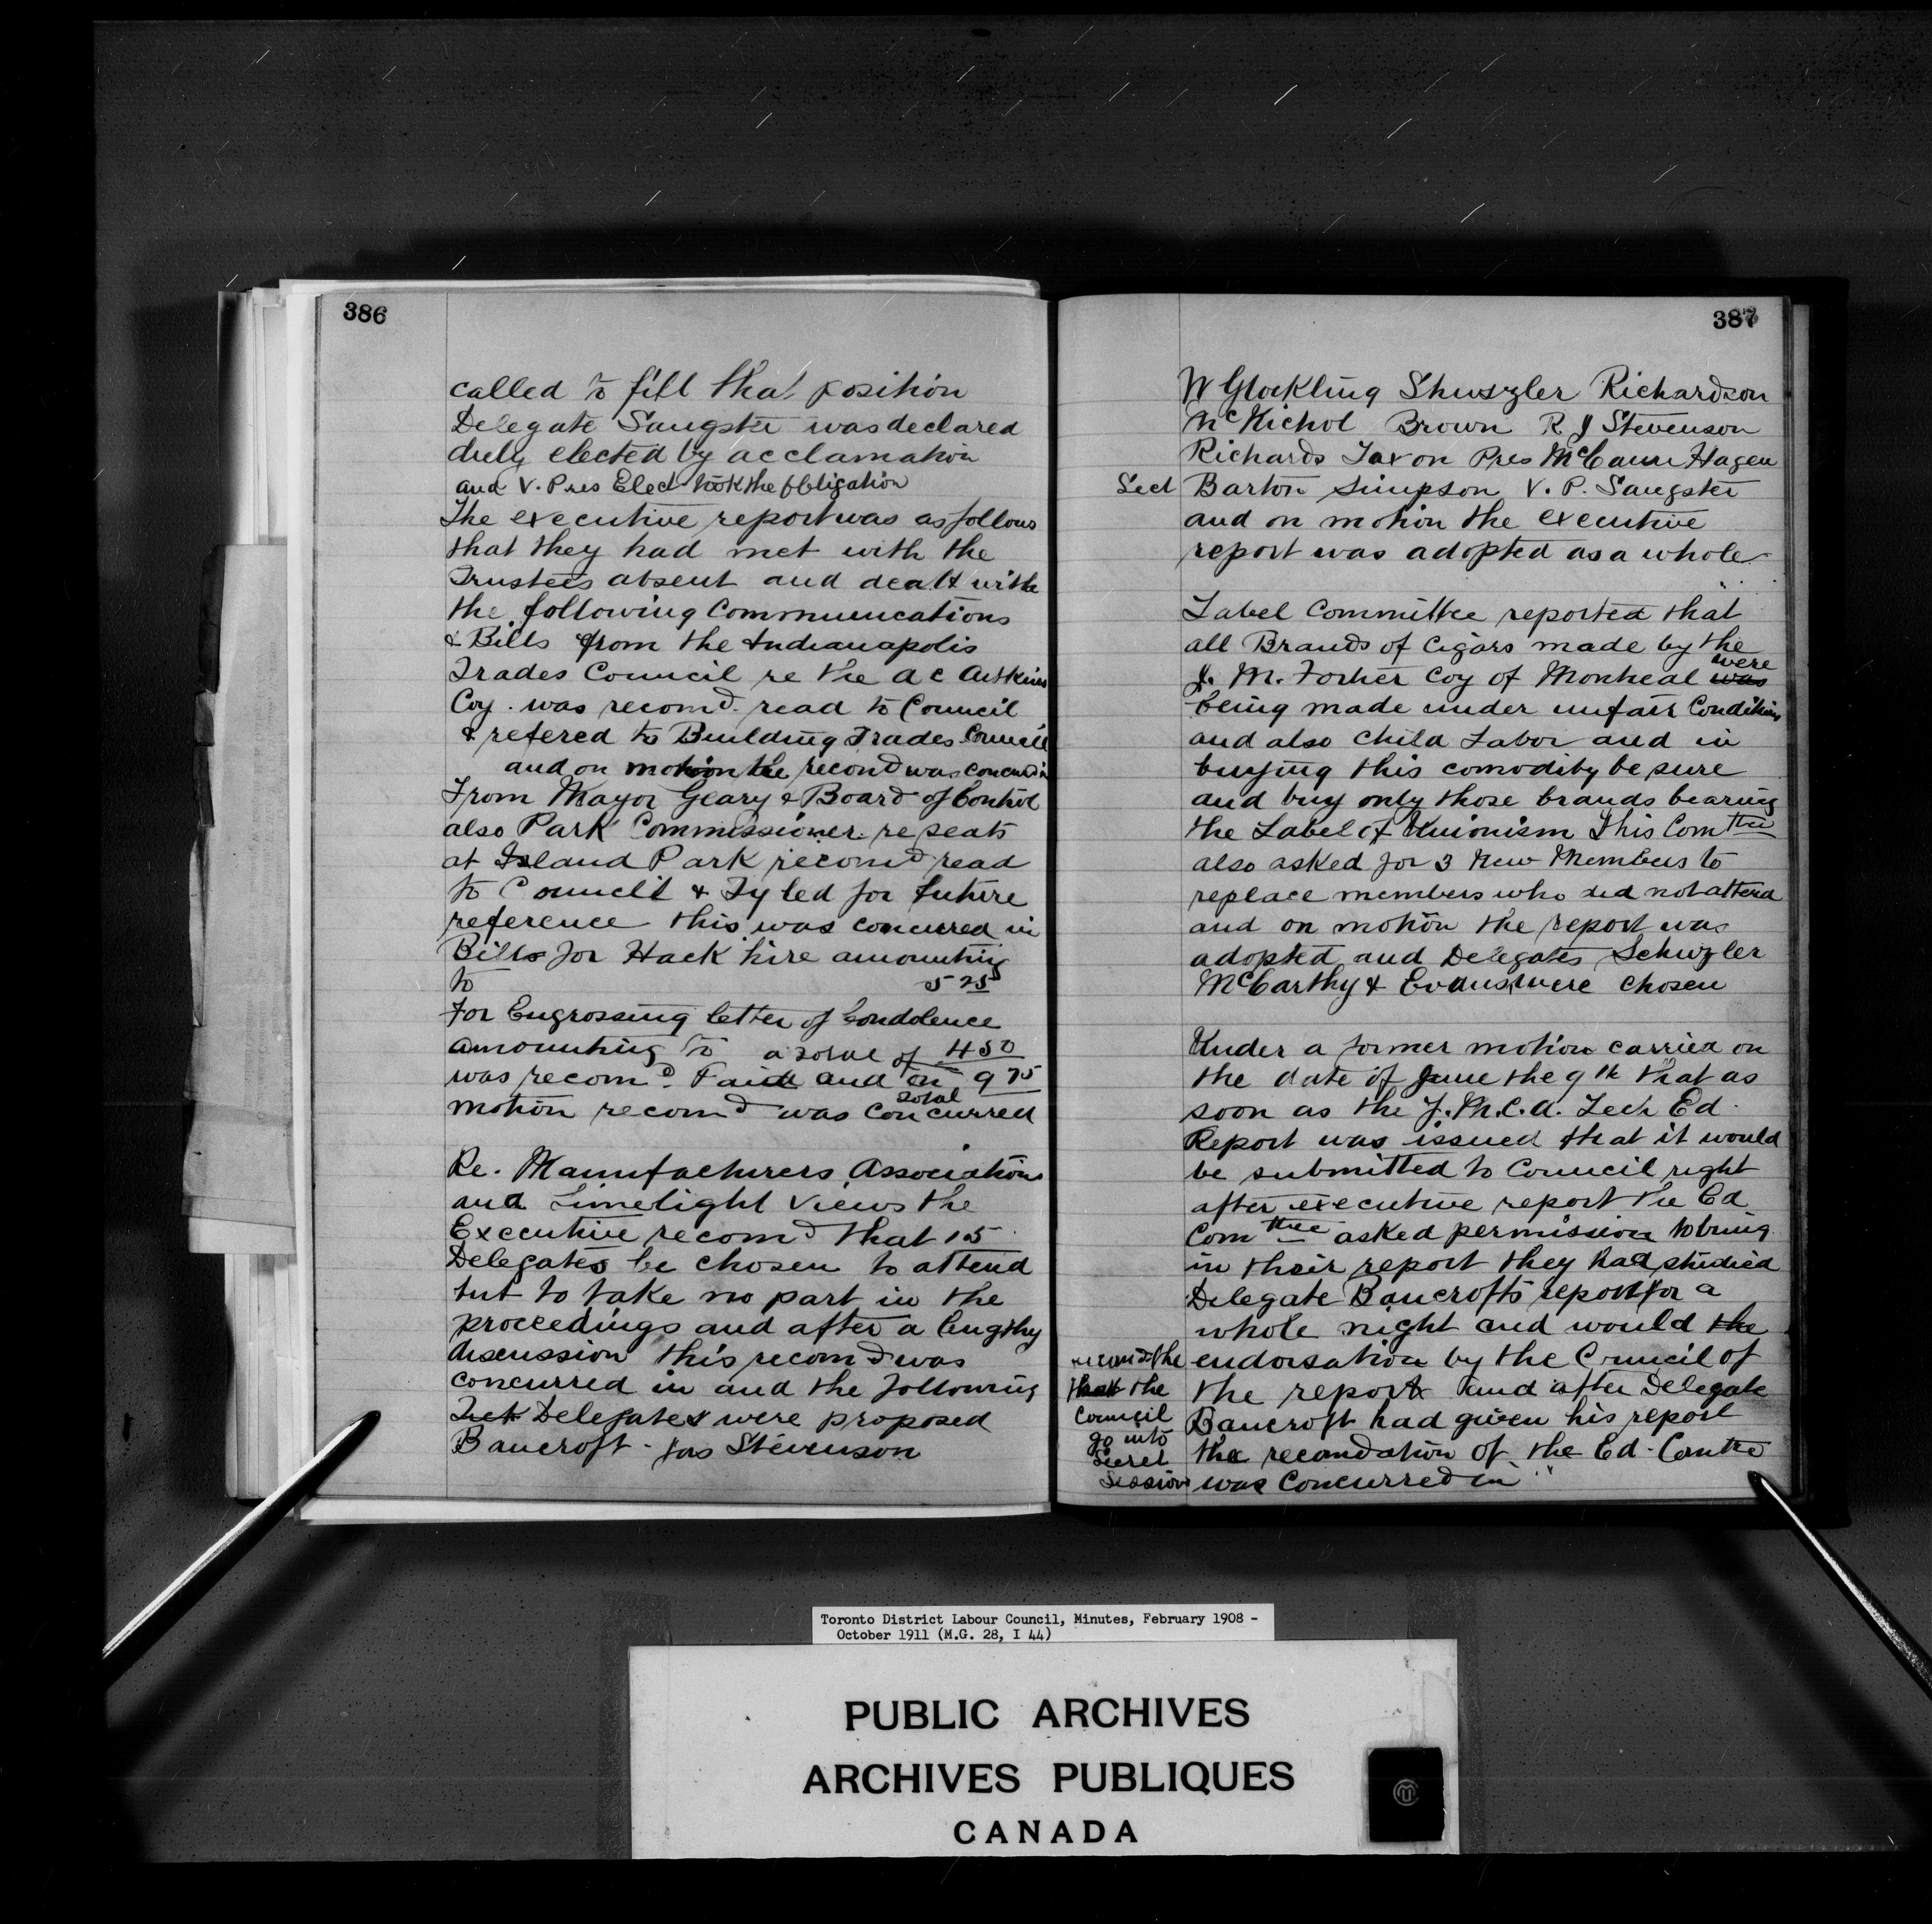 386
called to fill that position
Delegate Sangster was declared
duly elected by acclamation
and V. Pres Elect took the Obligation
The executive report was as follows
that they had met with the
Trustees absent and dealt with
the following Communications
& Bills from the Indianapolis
Trades Council re the A C
Coy. was recomd. read to Council
& refered to Building Trades Council
and on motion the recomd was concured in
From Mayor Geary & Board of Control
also Park Commissioner re seats
at Island Park recomd read
to Council & Fyled for future
reference this was concurred in
Bills for Hack hire amounting
to 5 25
For Engrossing letter of Condolence
amounting to a total of 4 50
was recomd. Paid and on 9 75
total
motion recomd was concurred
Re. Manufacturers Associations
and Limelight Views the
Executive recomd that 15
Delegates be chosen to attend
but to take no part in the
proceedings and after a lengthy
discussion this recomd was
concurred in and the following
Delegates were proposed
Bancroft - Jas Stevenson
387
W Glockling Shuszler Richardson
McNichol Brown R. J Stevenson
Richards Taxon Pres McCann Hagen
Sect Barton Simpson V. P. Sangster
and on motion the executive
report was adopted as a whole
Label Committee reported that
all Brands of Cigars made by the
were
J. M. Fortier Coy of Montreal was
being made under unfair Conditions
and also Child Labor and in
buying this comodity be sure
and buy only those brands bearing
the Label of Unionism This Comttee
also asked for 3 New Members to
replace members who did not attend
and on motion the report was
adopted and Delegates Schuzler
McCarthy & Evans were chosen
Under a former motion carried on
the date of June the 9th that as
soon as the Y.M.C.A. Tech Ed.
Report was issued that it would
be submitted to Council right
after executive report the Ed
Comttee asked permission to bring
in their report they had studied
Delegate Bancrofts report for a
whole night and would the
recomd the endorsation by the Council of
that the the report and after Delegate
Council Bancroft had given his report
go into
Secret the recomdation of the Ed. Comtte
Session was Concurred in
Toronto District Labour Council, Minutes, February 1908 -
October 1911 (M.G. 28, I 44)
PUBLIC ARCHIVES
ARCHIVES PUBLIQUES
CANADA